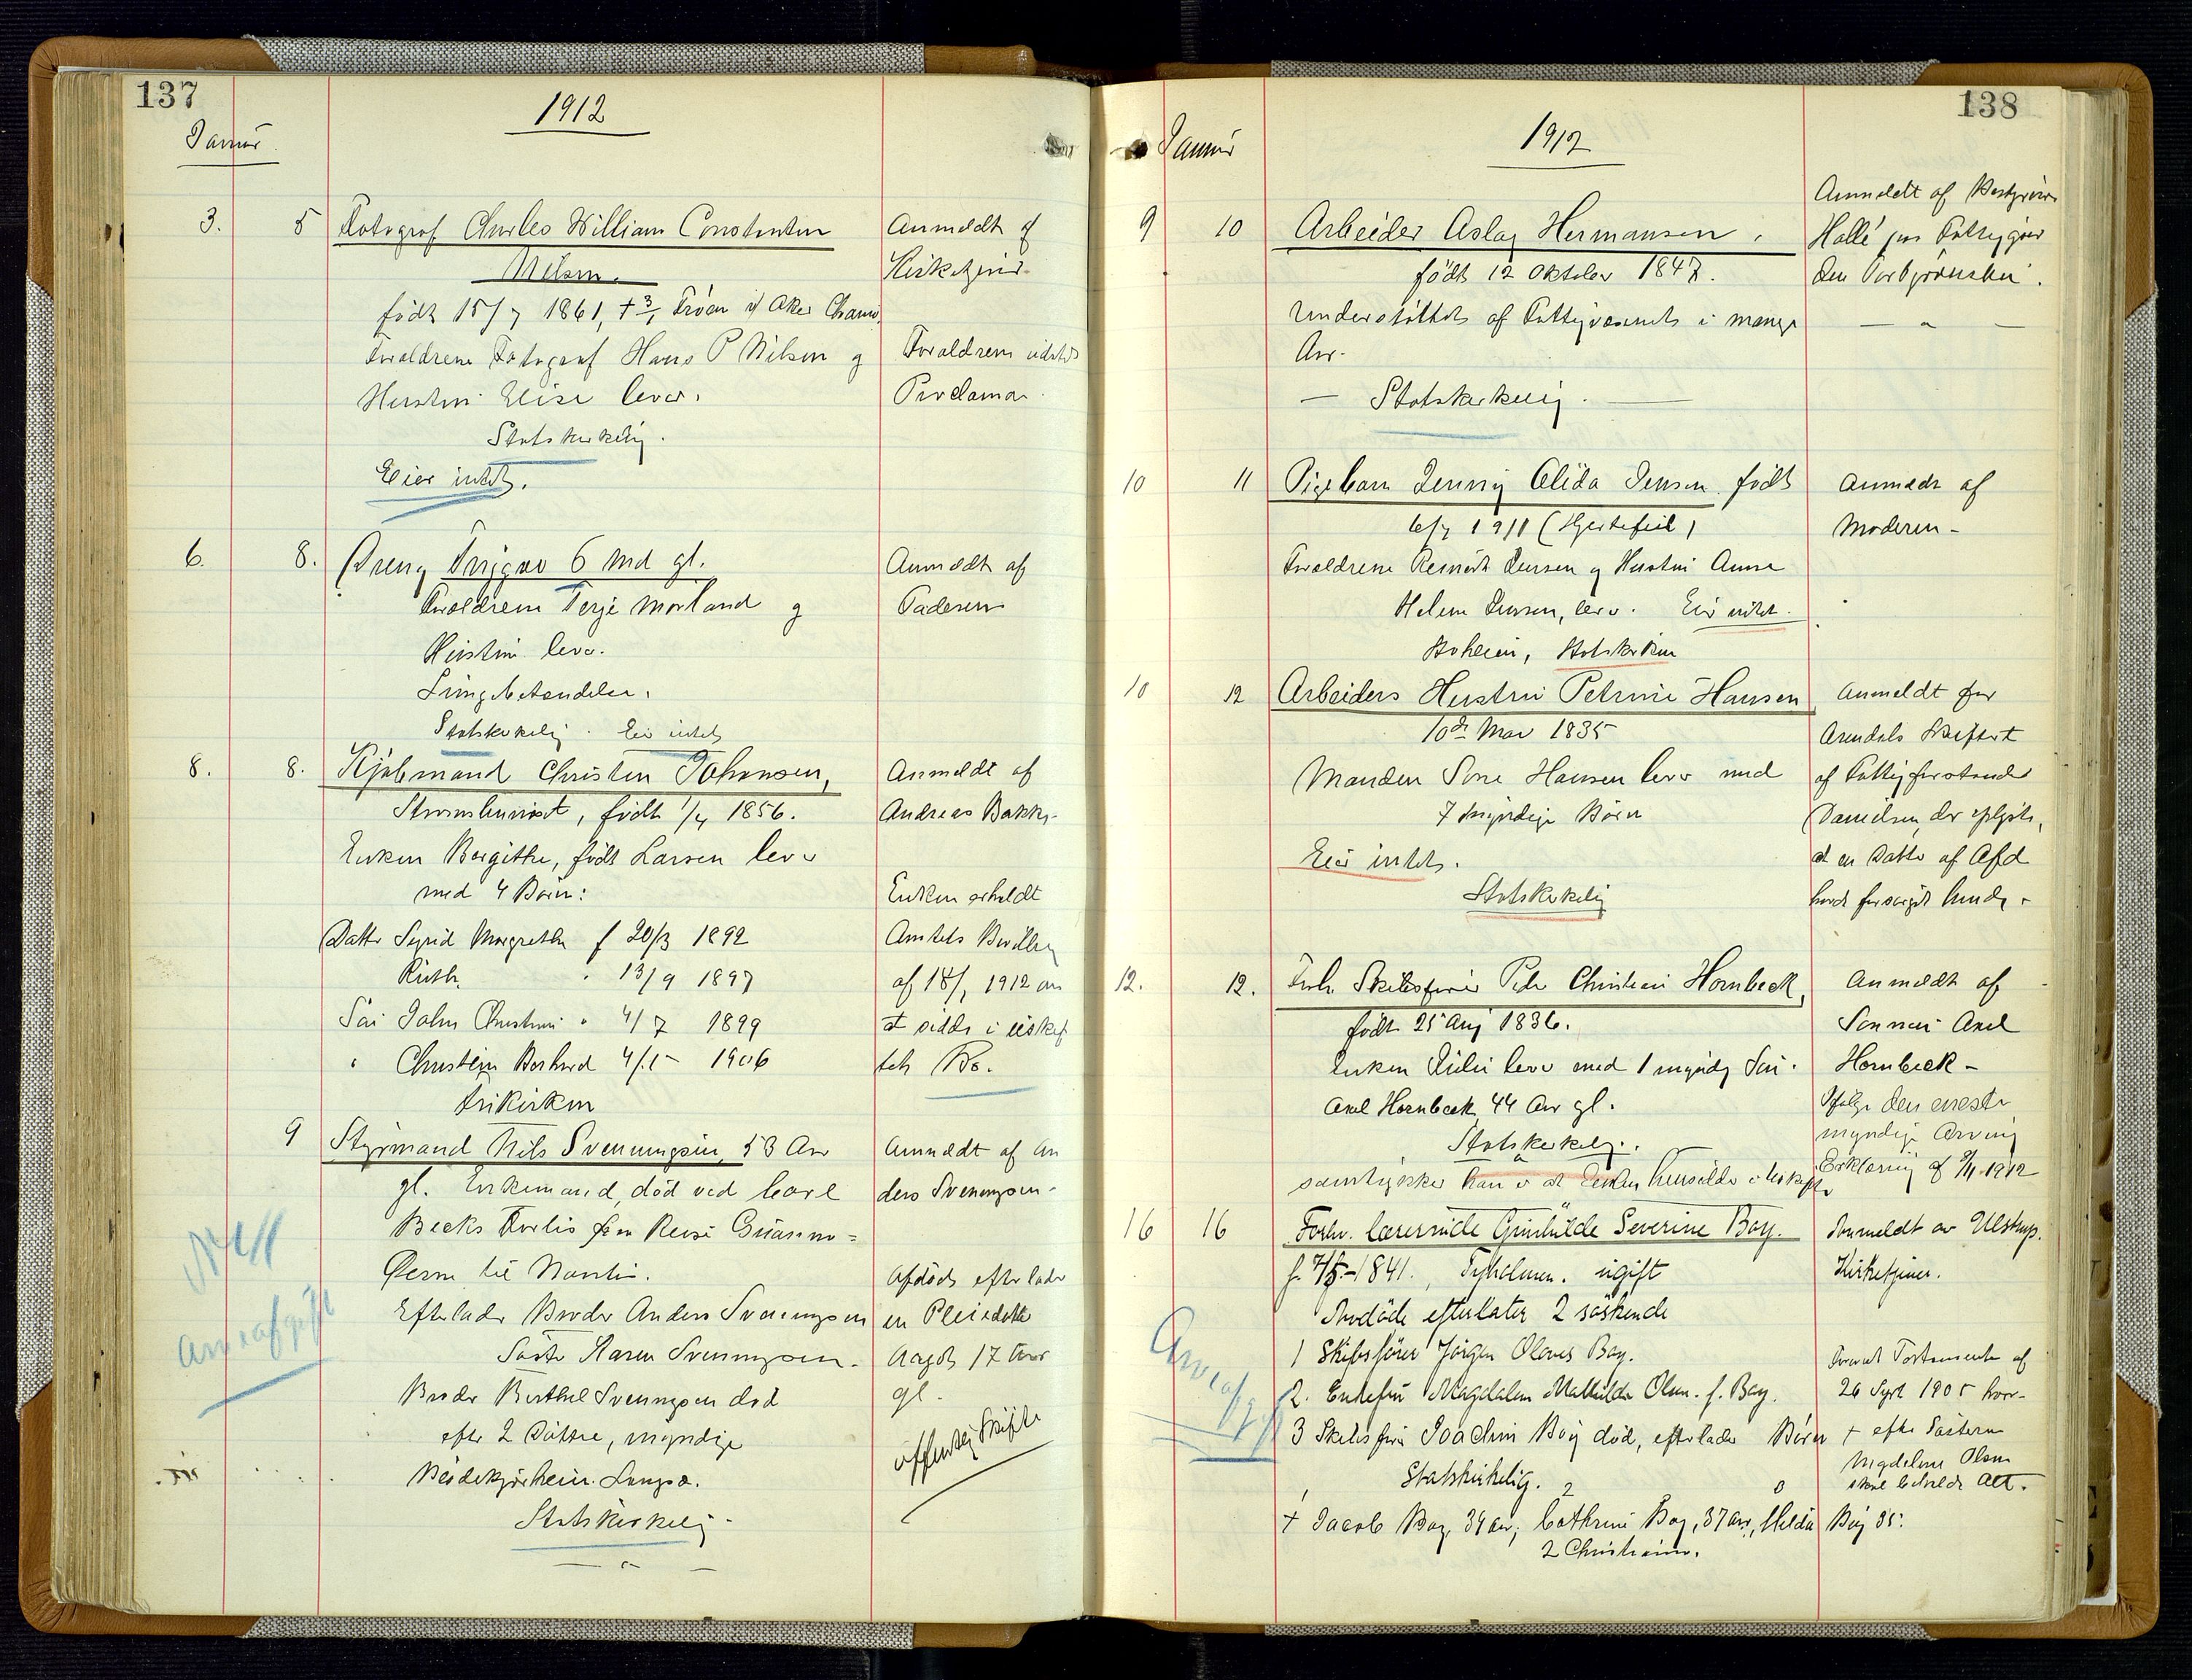 137
1912
Januar
3. 5 Fotograf Charles William Constantin
Nilsen.
Anmeldt af
Kirketjener
født 15/7 1861, + 3/1
Forældrene Fotograf Hans P Nilsen og
Hustru Elise lever.
Forældrene udsteder
Proclama.
Statskirkelig.
Eier intet.
6. 8. Dreng Trygve 6 Md gl.
Anmeldt af
Faderen
Forældrene Terje Morland og
Hustru lever.
Lungebetændelse.
Statskirkelig. Eier intet
8. 8. Kjøbmand Christen Johansen,
Anmeldt af
Strømsbuneset, født 1/4 1856.
Andreas Bakke.
Enken Bergithe, født Larsen lever
med 4 Børn:
Enken erholdt
Datter Sigrid Margrethe f 20/3 1892
Amtets Bevilling
Ruth " 13/9 1897
af 18/1 1912 om
Søn John Christian " 4/7 1899
at sidde i uskif
" Christen Bernhard 4/5 1906
tet Bo.
Frikirken
9 Styrmand Nils Svenningsen, 53 Aar
Anmeldt af An
gl. Enkemand, død ved Carl
ders Svenningsen.
Becks Forlis fra Reise
til Nantes.
Afdøde efterlader
Efterlader Broder Anders Svenningsen
en Pleiedatter
Søster Karen Svenningsen.
Aagot 17 Aar
Broder Berthel Svenningsen død
gl.
efter 2 Døttre, myndige
offentlig Skifte
Langsæ.
Statskirkelig.
Arveafgift
138
1912
Januar
Anmeldt af
9 10 Arbeider Aslag Hermansen.
Halle
født 12 Oktober 1847.
Understøttet af Fattigvæsenet i mange
Aar.
Statskirkelig.
10 11 Pigebarn Jenny Alida Jensen født
Anmeldt af
6/7 1911 (Hjertefeil)
Moderen
Forældrene Reinert Jensen og Hustru Anna
Helene Jensen, lever. Eier intet.
Statskirken
10 12 Arbeiders Hustru Petrine Hansen
Anmeldt for
10de Mar 1835
Arendals Skifteret
Manden Sone Hansen lever med
af Fattigforstander
7 myndige Børn
Danielsen, der oplyste,
Eier intet.
at en Datter af Afd
Statskirkelig
havde forsørget hende.
12. 12. Forh. Skibsfører Peder Christian Hornbeck,
Anmeldt af
født 25 Aug 1836.
Sønnen Axel
Enken Julie lever med 1 myndig Søn.
Hornbeck
Axel Hornbeck 44 Aar gl.
Ifølge den eneste
Statskirkelig.
myndige Arving
Erklæring af 9/1 1912
samtykker han i at Enken hensidder i uskiftet
16 16 Forhv. lærerinde Gunhilde Severine Boy.
Anmeldt av Ulstrup.
Kirketjener.
1841. Tyholmen. ugift
Avdøde efterlater 2 søskende
1 Skibsfører Jørgen Olaves Boy.
2. Enkefru Magdalene Mathilde Olsen f. Boy.
26 Sept 1905
3 Skibsfører Joachim Boy død, efterlader Børn
+ efter Søsteren
Magdalene Olsen
Statskirkelig.
skal beholde Alt.
+ Jacob Boy, 39 aar, Cathrine Boy, 37 aar, Hilda Boy 35.
2 Christiania.
Arveafgift